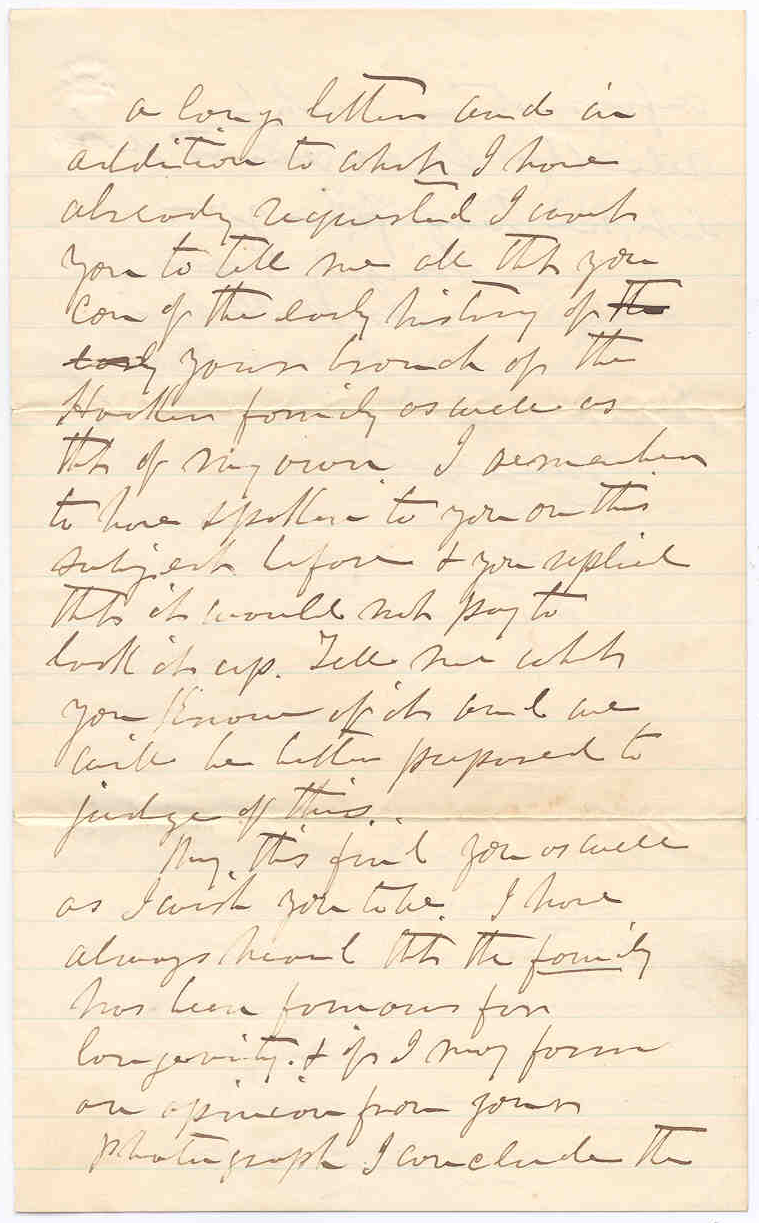 a long letter and in
addition to what I have
already requested I want
you to tell me all that you
can of the early history of the
early your branch of the
Hooker family as well as
that of my own I remember
to have spoken to you on this
subject before & you replied
that it would not pay to
look it up. Tell me what
you know of it and we
will be better prepared to
judge of this.
May this find you as well
as I wish you to be. I have
always heard that the family
has been famous for
longevity. & if I may form
an opinion from your
photograph I conclude the